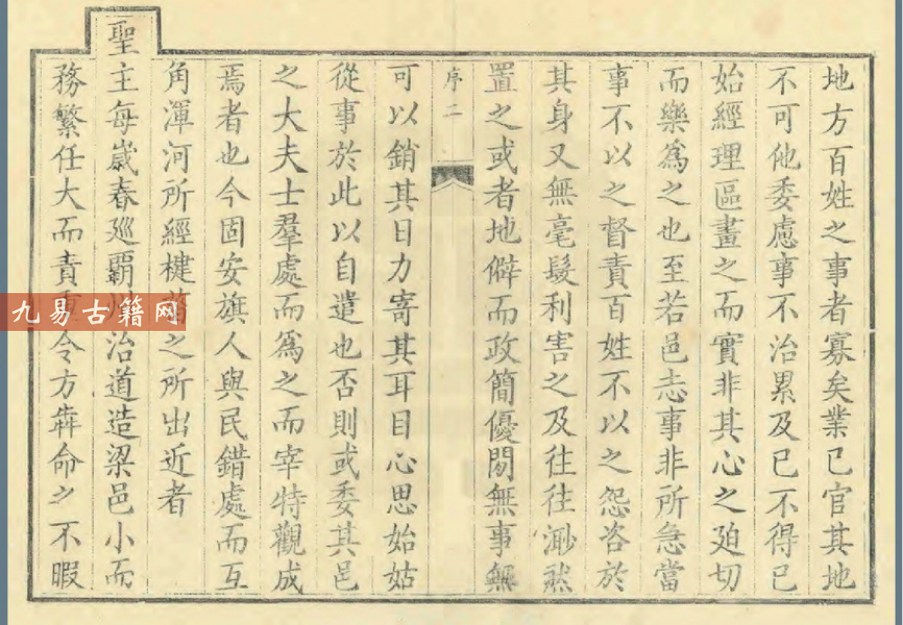 地方百姓之事者寡矣業已官其地
不可他委慮事不治累及已不得已
始經理區畫之而實非其心之廹切
而樂為之也至若邑志事非所急當
事不以之督責百姓不以之怨咨於
其身又無毫髮利害之及往往渺然
置之或者地僻而政簡優閒無事無
序二
可以銷其日力寄其耳目心思始姑
從事於此以自遣也否則或委其邑
之大夫士羣處而為之而宰特觀成
焉者也今固安旗人與民錯處而互
角渾河所經楗菑之所出近者
聖主每歲春廵霸州治道造梁邑小而
務繁任大而責重令方犇命之不暇
九易古籍网